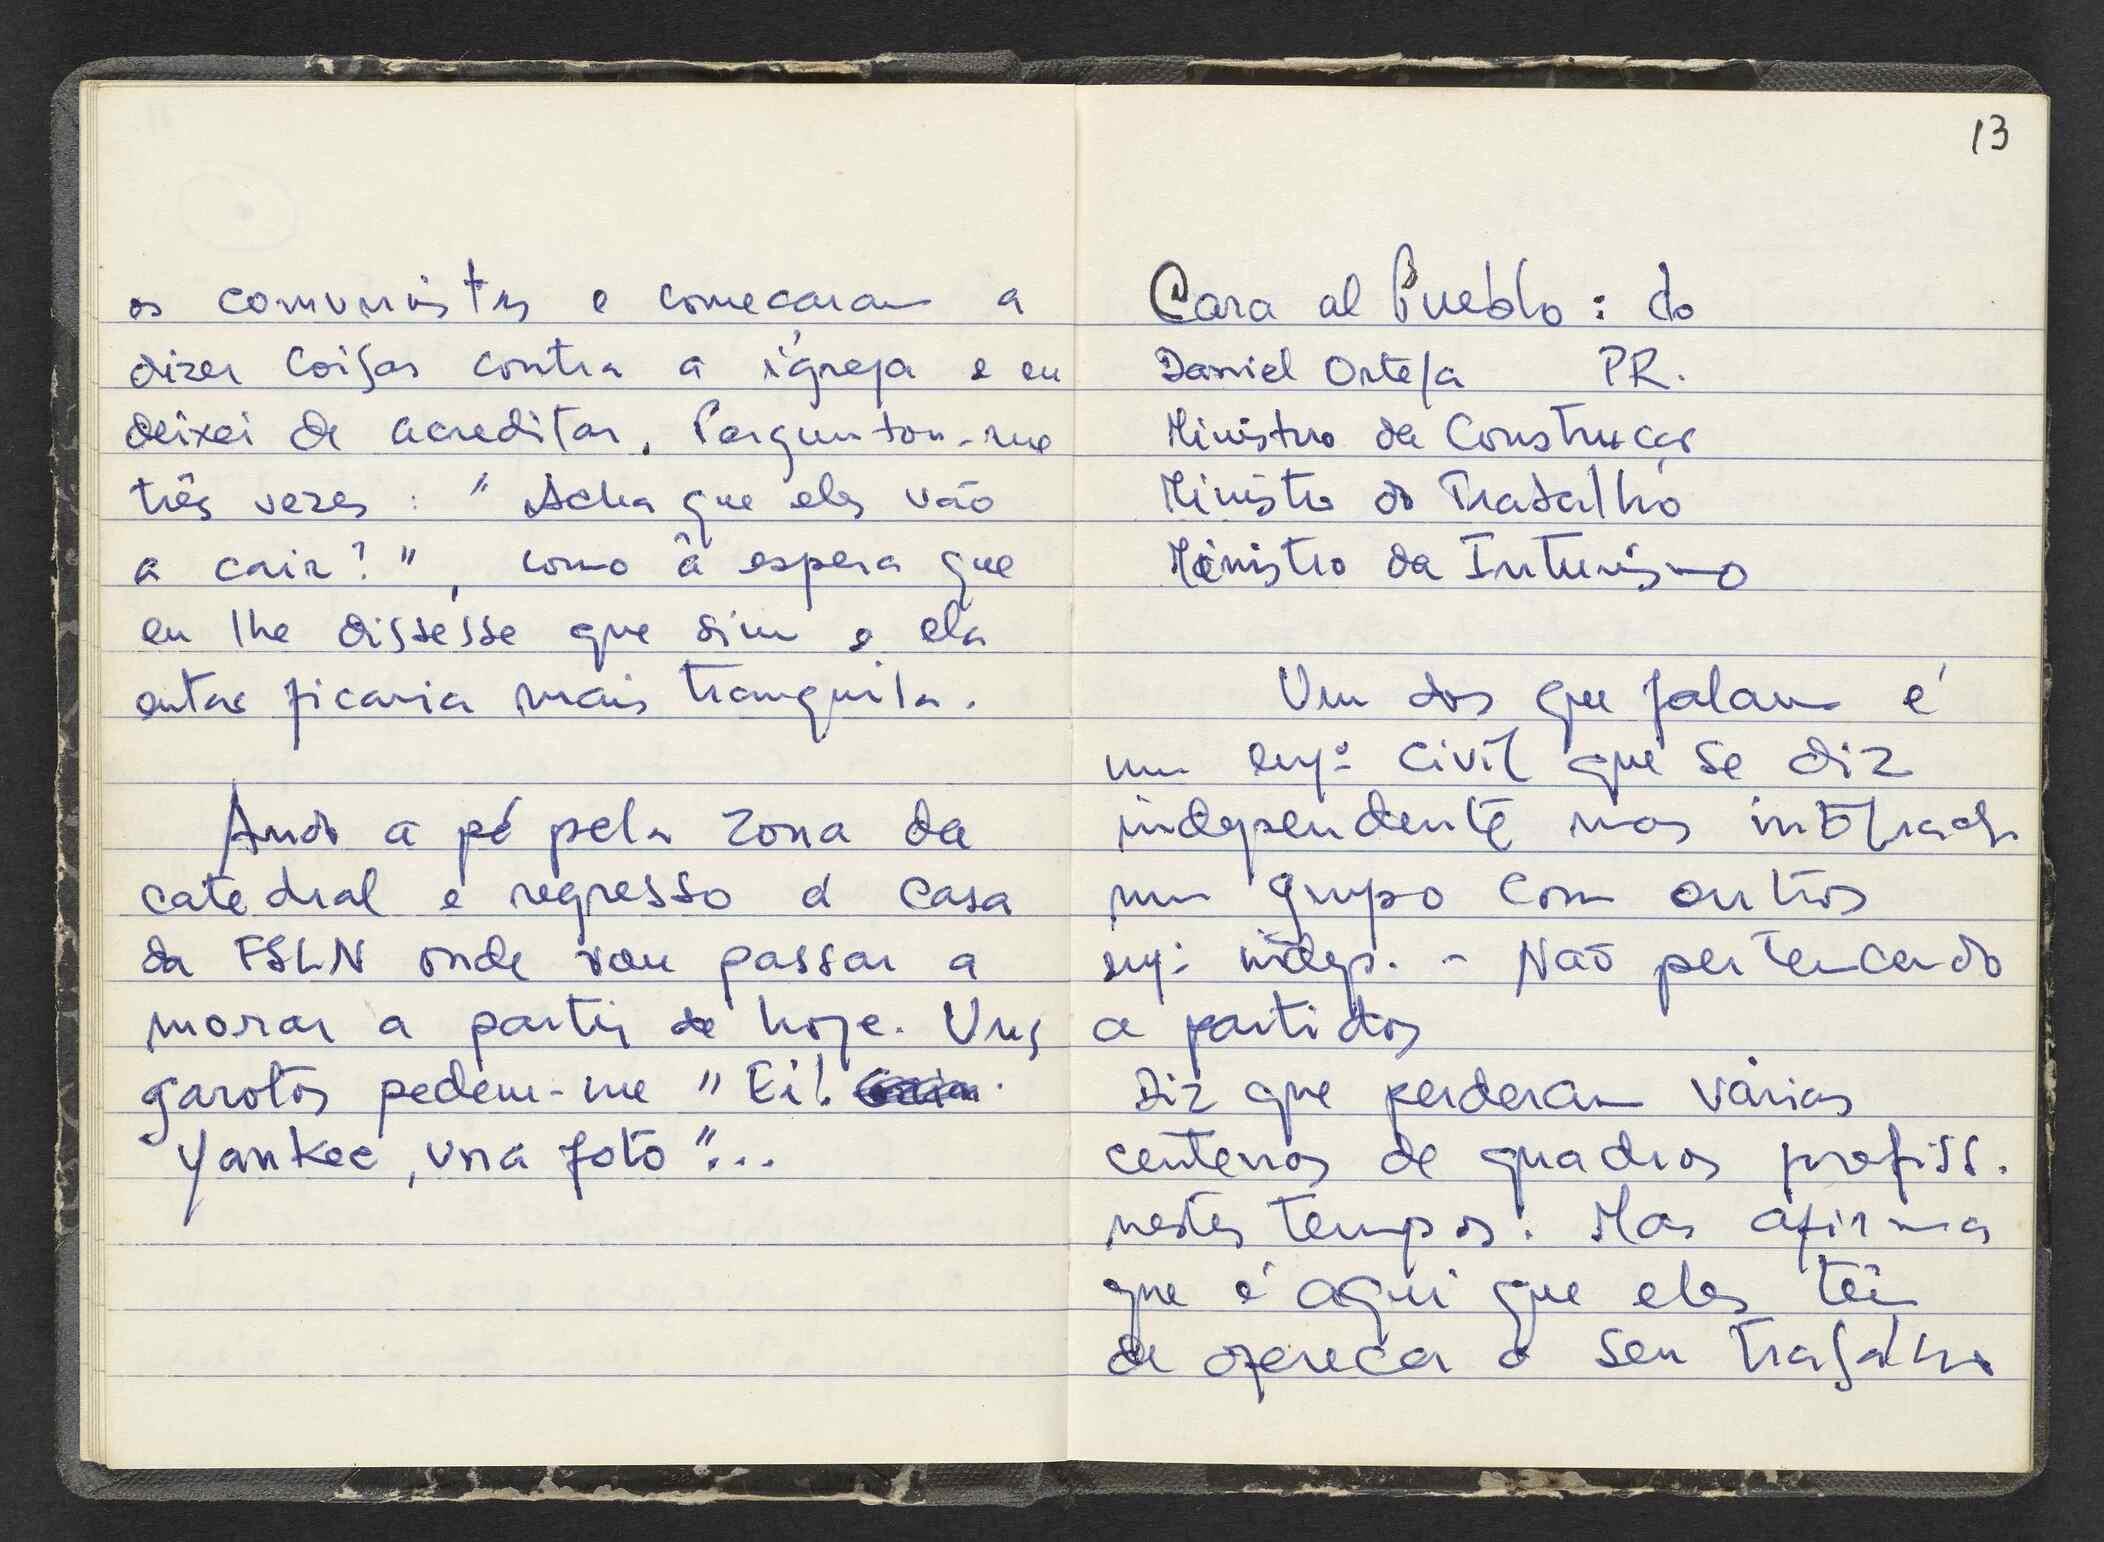 os comunistas e começaram a
dizer coisas contra a igreja e eu
deixei de acreditar. Perguntou-me
três vezes: "Acha que eles vão
a cair?", como à espera que
eu lhe dissesse que sim e ela
então ficaria mais tranquila.
Ando a pé pela zona da
catedral e regresso à casa
da FSLN onde vou passar a
morar a partir de hoje. Uns
garotos pedem-me "Ei!
Yankee, una foto"...
13
Cara al Pueblo: do
Daniel Ortega PR.
Ministro da Construção
Ministro do Trabalho
Ministro da Inturismo
Um dos que falam é
um engº civil que se diz
independente mas integrado
num grupo com outros
engº indep. - Não pertencendo
a partidos
Diz que perderam várias
centenas de quadros profiss.
nestes tempos. Mas afirma
que é aqui que eles têm
de oferecer o seu trabalho